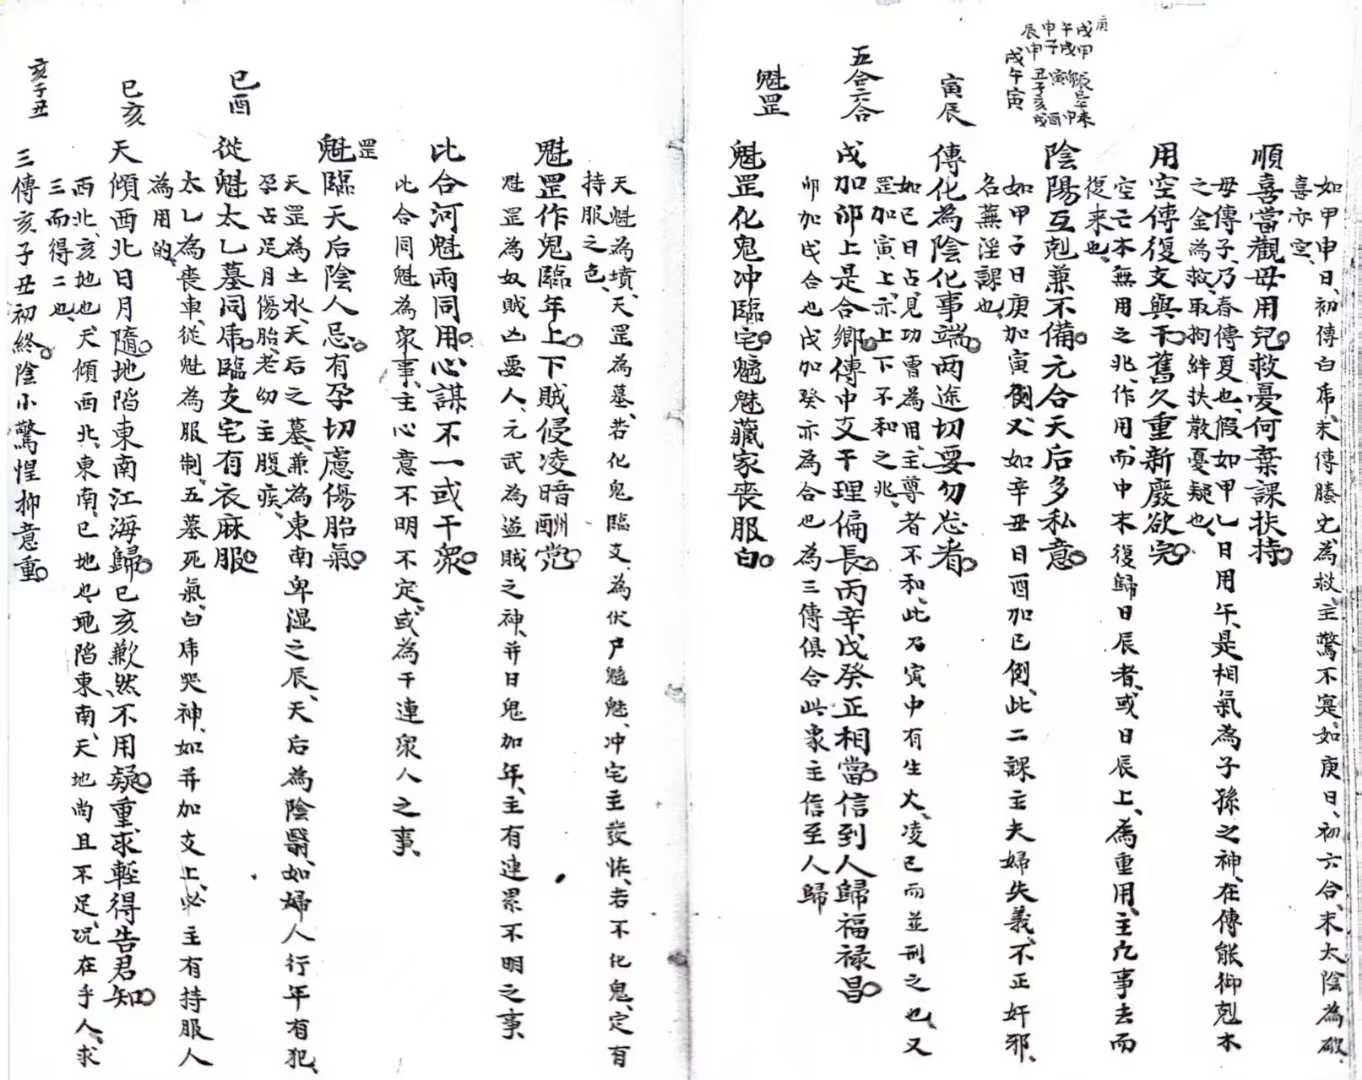 如甲申日、初傳白虎、末傳螣虵為救、主驚不寔、如庚日、初六合、末太陰為破、
喜亦空、
順喜當觀母用兒救憂何棄課扶持
母傳子、乃春傳夏也、假如甲乙日用午、是相氣為子孫之神、在傳能御剋木
之金為救、取拘絆扶散憂疑也、
用空傳復支與干舊久重新廢欲完
空亡本無用之兆、作用而中末復歸日辰者、或日辰上、為重用、主凢事去而
復來也、
戊午寅
陰陽互剋兼不備元合天后多私意
如甲子日庚加寅倒、又如辛丑日酉加巳倒、此二課主夫婦失義、不正奸邪、
名蕪淫課也、
寅辰
傳化為陰化事端兩途切要勿忿者
如己日占見功曹為用、主尊者不和、此乃寅中有生火、凌己而並刑之也、又
罡加寅上、亦上下不和之兆、
五合六合
戌加卯上是合鄉傳中支干理偏長丙辛戊癸正相當信到人歸福祿昌
卯加戌合也戊加癸亦為合也為三傳俱合此象主信至人歸
魁罡
魁罡化鬼冲臨宅魑魅藏家喪服白
天魁為墳、天罡為墓、若化鬼臨支、為伏尸魑魅、冲宅主發怪、若不化鬼、定有
持服之色、
魁罡作鬼臨年上下賊侵凌暗酬党
魁罡為奴賊凶惡人、元武為盜賊之神、并日鬼加年、主有連累不明之事、
比合河魁兩同用心謀不一或干衆
比合同魁為衆事、主心意不明不定、或為干連衆人之事、
罡
魁臨天后陰人忌有孕切慮傷胎氣
天罡為土水、天后之墓、兼為東南卑湿之辰、天后為陰翳、如婦人行年有犯、
孕占足月傷胎、老幼主腹疾、
巳酉
從魁太乙墓同虎臨支宅有衣麻服
太乙為喪車、從魁為服制、五墓死氣、白虎哭神、如并加支上、必主有持服人
為用的、
巳亥
天傾西北日月隨地陷東南江海歸巳亥歉然不用疑重求輕得告君知
西北、亥地也、天傾西北、東南、巳地也、地陷東南、天地尚且不足、况在乎人、求
三而得二也、
亥子丑
三傳亥子丑初終陰小驚惶抑意重